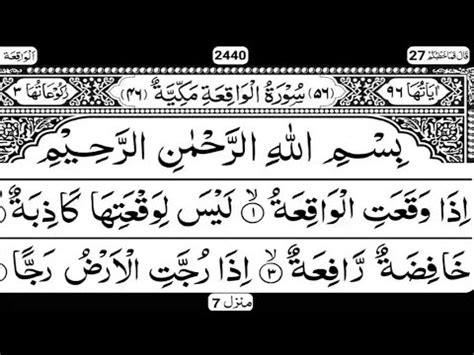 الواقعة ٥٦ 2440 قال فما خطبكم 27
اٰيَاتُهَا ٩٦ (٥٦) سُوْرَةُ الْوَاقِعَةِ مَكِّيَّةٌ (٤٦) رُكُوْعَاتُهَا ٣
بِسْمِ اللّٰهِ الرَّحْمٰنِ الرَّحِيْمِ
اِذَا وَقَعَتِ الْوَاقِعَةُ ۙ‏﴿۱﴾ لَيْسَ لِوَقْعَتِهَا كَاذِبَةٌ
خَافِضَةٌ رَّافِعَةٌ ۙ‏﴿۳﴾ اِذَا رُجَّتِ الْاَرْضُ رَجًّا
منزل 7